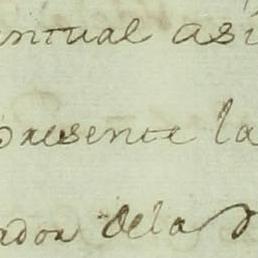 ntual asi
presente la
ador de la